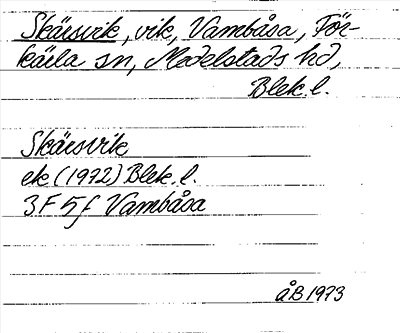 Skärsvik, vik, Vambåsa, För-
kärla sn, Medelstads hd,
Blek. l.
Skärsvik
ek (1972) Blek. l.
3F 5f Vambåsa
åB 1973